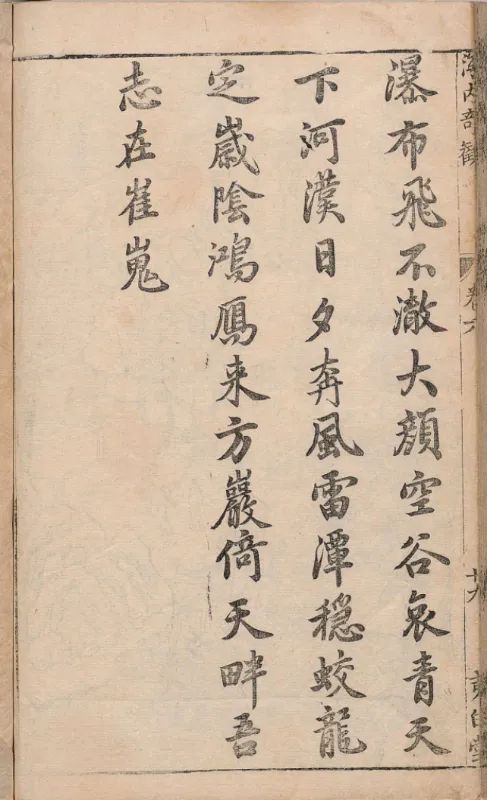 海内奇觀
卷六
夷白堂
瀑布飛不澈大顏空谷哀青天
下河漢日夕奔風雷潭穩蛟龍
定歲陰鴻鴈来方巖倚天畔吾
志在崔嵬